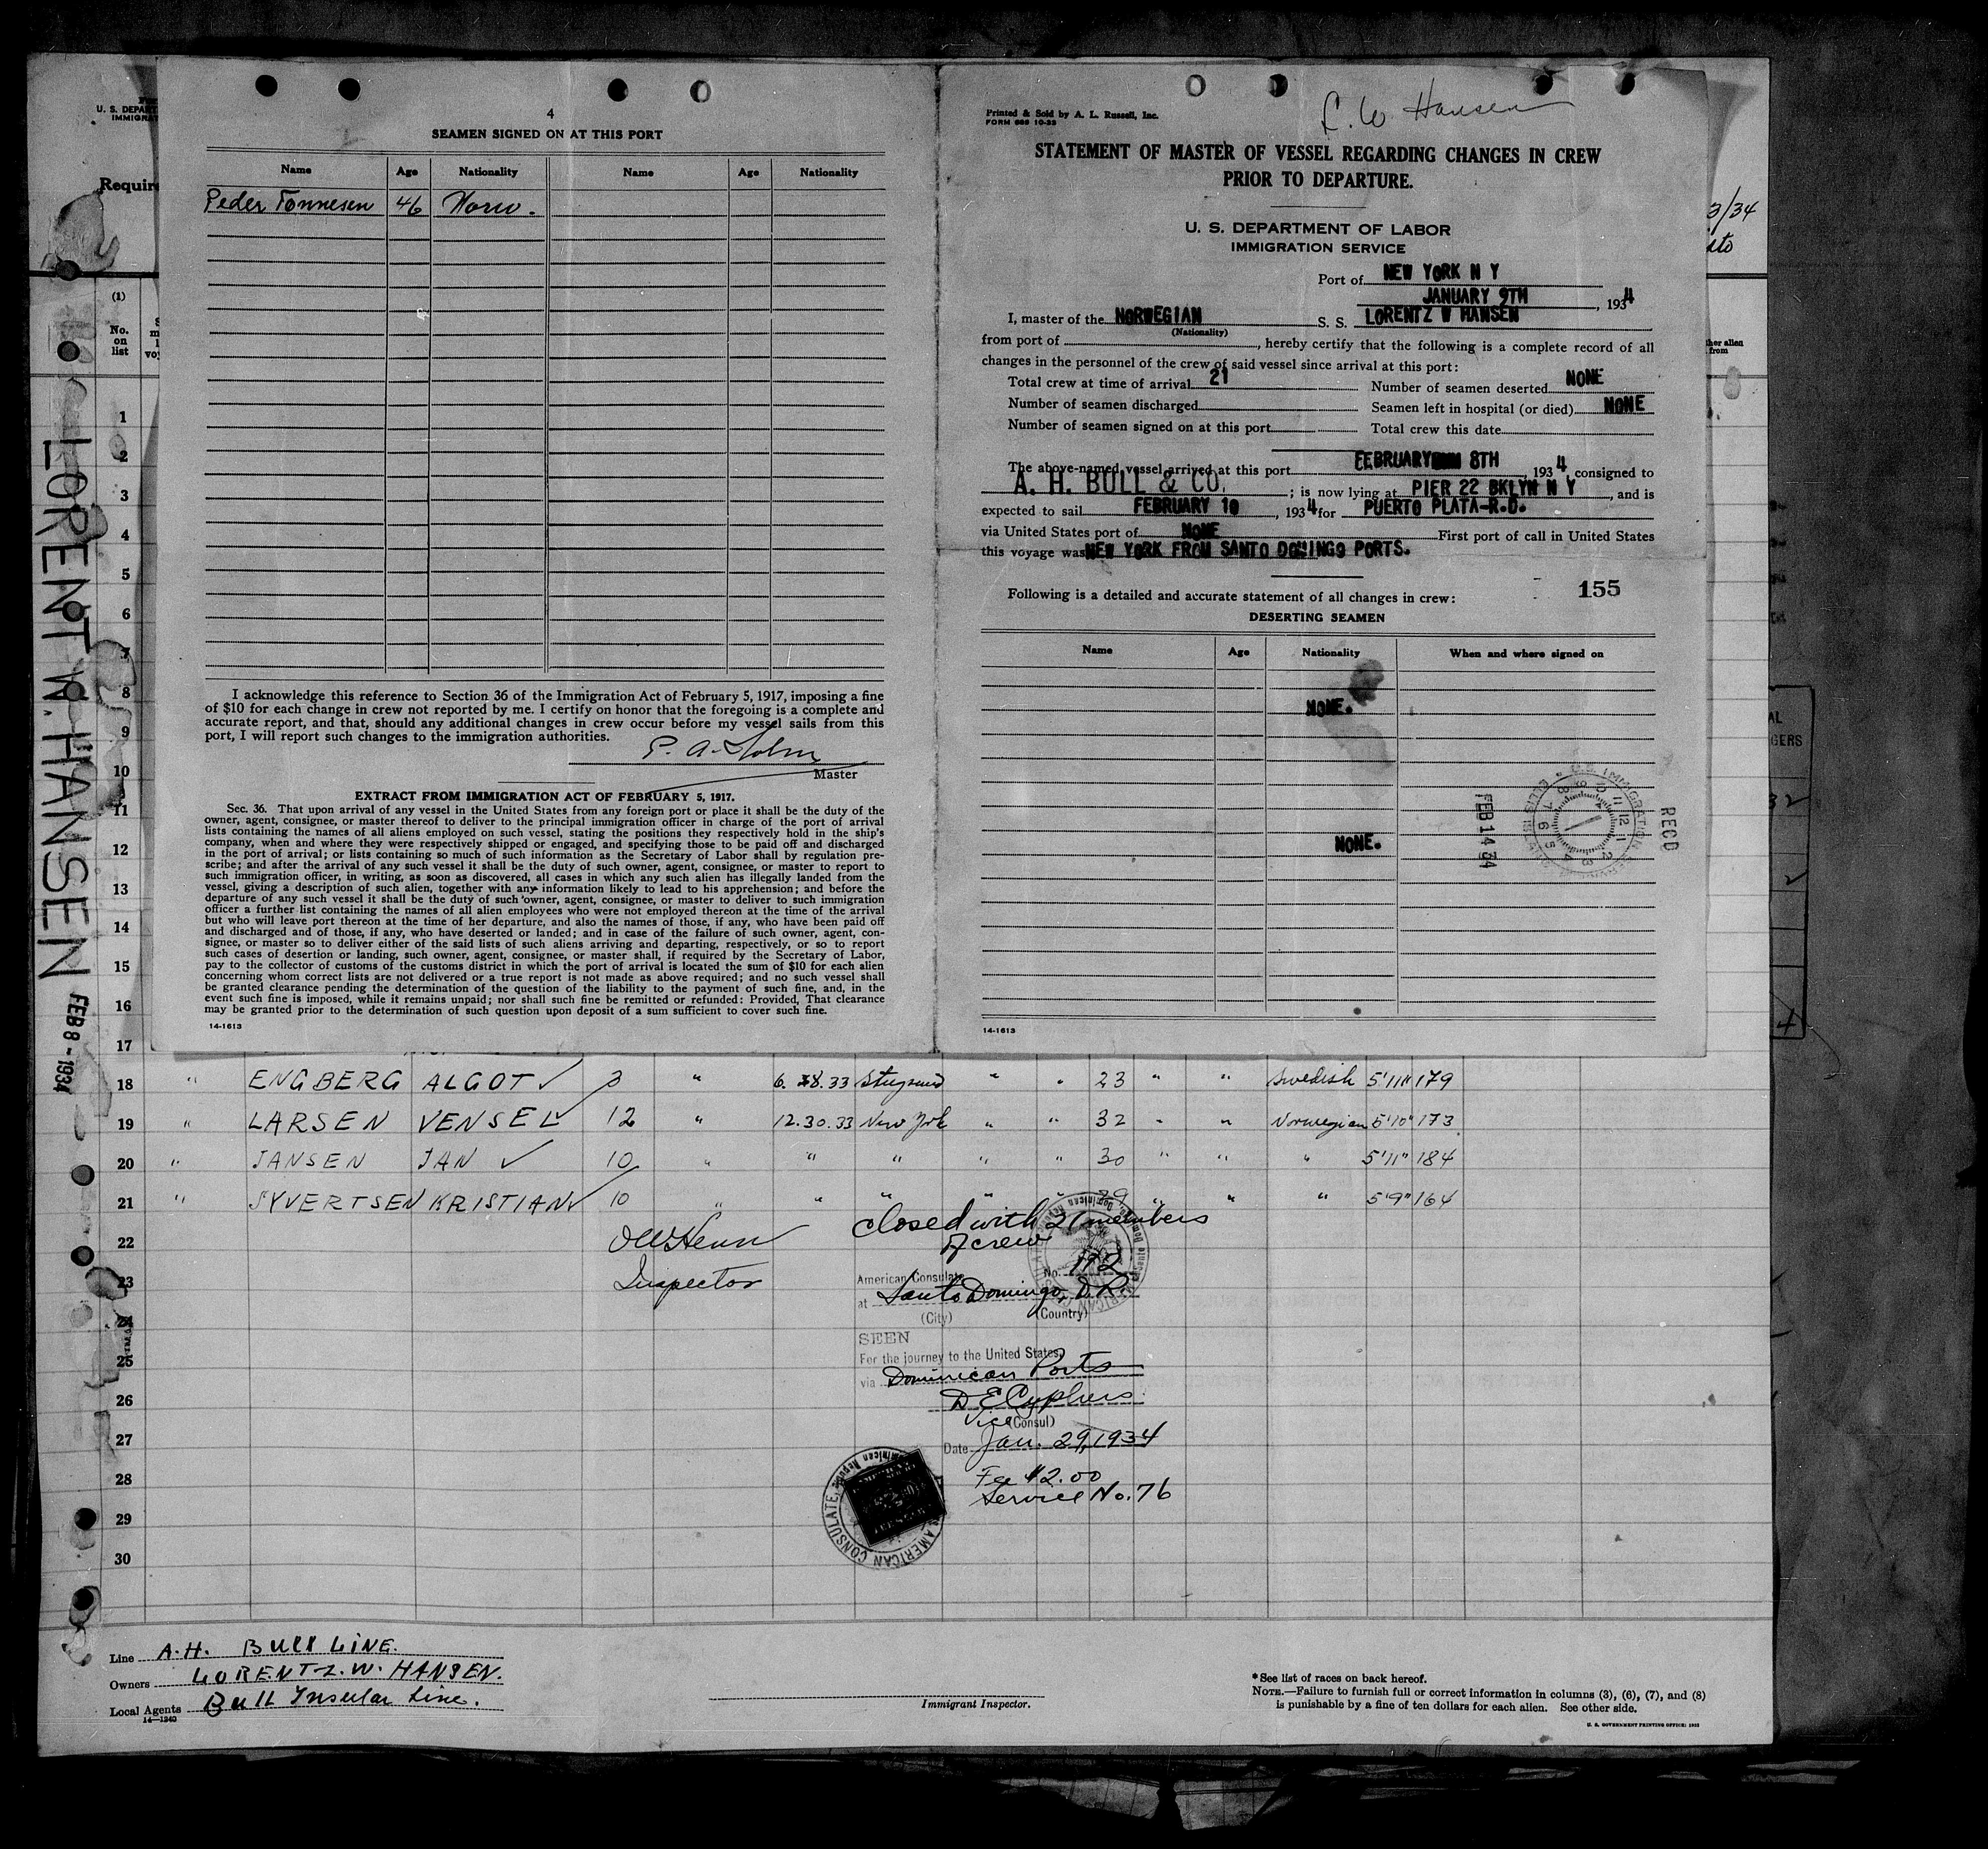 4
SEAMEN SIGNED ON AT THIS PORT
Name Age Nationality Name Age Nationality
Peder Tønnesen 46 Norw.
I acknowledge this reference to Section 36 of the Immigration Act of February 5, 1917, imposing a fine
of $10 for each change in crew not reported by me. I certify on honor that the foregoing is a complete and
accurate report, and that, should any additional changes in crew occur before my vessel sails from this
port, I will report such changes to the immigration authorities.
P. A. Holm
Master
EXTRACT FROM IMMIGRATION ACT OF FEBRUARY 5, 1917.
Sec. 36. That upon arrival of any vessel in the United States from any foreign port or place it shall be the duty of the
owner, agent, consignee, or master thereof to deliver to the principal immigration officer in charge of the port of arrival
lists containing the names of all aliens employed on such vessel, stating the positions they respectively hold in the ship's
company, when and where they were respectively shipped or engaged, and specifying those to be paid off and discharged
in the port of arrival; or lists containing so much of such information as the Secretary of Labor shall by regulation pre-
scribe; and after the arrival of any such vessel it shall be the duty of such owner, agent, consignee, or master to report to
such immigration officer, in writing, as soon as discovered, all cases in which any such alien has illegally landed from the
vessel, giving a description of such alien, together with any information likely to lead to his apprehension; and before the
departure of any such vessel it shall be the duty of such owner, agent, consignee, or master to deliver to such immigration
officer a further list containing the names of all alien employees who were not employed thereon at the time of the arrival
but who will leave port thereon at the time of her departure, and also the names of those, if any, who have been paid off
and discharged and of those, if any, who have deserted or landed; and in case of the failure of such owner, agent, con-
signee, or master so to deliver either of the said lists of such aliens arriving and departing, respectively, or so to report
such cases of desertion or landing, such owner, agent, consignee, or master shall, if required by the Secretary of Labor,
pay to the collector of customs of the customs district in which the port of arrival is located the sum of $10 for each alien
concerning whom correct lists are not delivered or a true report is not made as above required; and no such vessel shall
be granted clearance pending the determination of the question of the liability to the payment of such fine, and, in the
event such fine is imposed, while it remains unpaid; nor shall such fine be remitted or refunded: Provided, That clearance
may be granted prior to the determination of such question upon deposit of a sum sufficient to cover such fine.
14-1613
Printed & Sold by A. L. Russell, Inc.
FORM 689 10-33
L. W Hansen
STATEMENT OF MASTER OF VESSEL REGARDING CHANGES IN CREW
PRIOR TO DEPARTURE.
U. S. DEPARTMENT OF LABOR
IMMIGRATION SERVICE
Port of NEW YORK N Y
JANUARY 9TH, 1934
I, master of the NORWEGIAN S. S. LORENTZ W HANSEN
(Nationality)
from port of , hereby certify that the following is a complete record of all
changes in the personnel of the crew of said vessel since arrival at this port:
Total crew at time of arrival 21 Number of seamen deserted NONE
Number of seamen discharged Seamen left in hospital (or died) NONE
Number of seamen signed on at this port Total crew this date
The above-named vessel arrived at this port FEBRUARY 8TH, 1934, consigned to
A. H. BULL & CO. ; is now lying at PIER 22 BKLYN N Y, and is
expected to sail FEBRUARY 10, 1934 for PUERTO PLATA-R.D.
via United States port of NONE First port of call in United States
this voyage was NEW YORK FROM SANTO DOMINGO PORTS.
155
Following is a detailed and accurate statement of all changes in crew:
DESERTING SEAMEN
Name Age Nationality When and where signed on
NONE.
NONE.
U.S. IMMIGRATION SERVICE ELLIS IS.
FEB 14 34
RECD
14-1613
U. S. DEPART
IMMIGRAT
Require
3/34
(1)
No. on list
LORENT W. HANSEN FEB 8 - 1934
1
2
3
4
5
6
7
8
9
10
11
12
13
14
15
16
17
18 " ENGBERG ALGOT ✓ 3 " 6. 8.33 " " 23 " " Swedish 5'11" 179
19 " LARSEN VENSEL ✓ 12 " 12.30.33 New York " " 32 " " Norwegian 5'10" 173
20 " JANSEN JAN ✓ 10 " " " " " 30 " " " 5'11" 184
21 " SYVERTSEN KRISTIAN ✓ 10 " " " " 29 " " " 5'9" 164
22
23
24
25
26
27
28
29
30
Inspector
Closed with 21 members
of crew
American Consulate No. 172
at Santo Domingo, D.R.
(City) (Country)
SEEN
For the journey to the United States,
via Dominican Ports
D E Cyphers
Vice (Consul)
Date Jan. 29, 1934
Fee $2.00
Service No. 76
AMERICAN CONSULATE
Line A.H. BULL LINE.
Owners LORENTZ. W. HANSEN.
Local Agents Bull Insular Line.
14-1240
Immigrant Inspector.
*See list of races on back hereof.
NOTE.—Failure to furnish full or correct information in columns (3), (6), (7), and (8)
is punishable by a fine of ten dollars for each alien. See other side.
U. S. GOVERNMENT PRINTING OFFICE: 1932